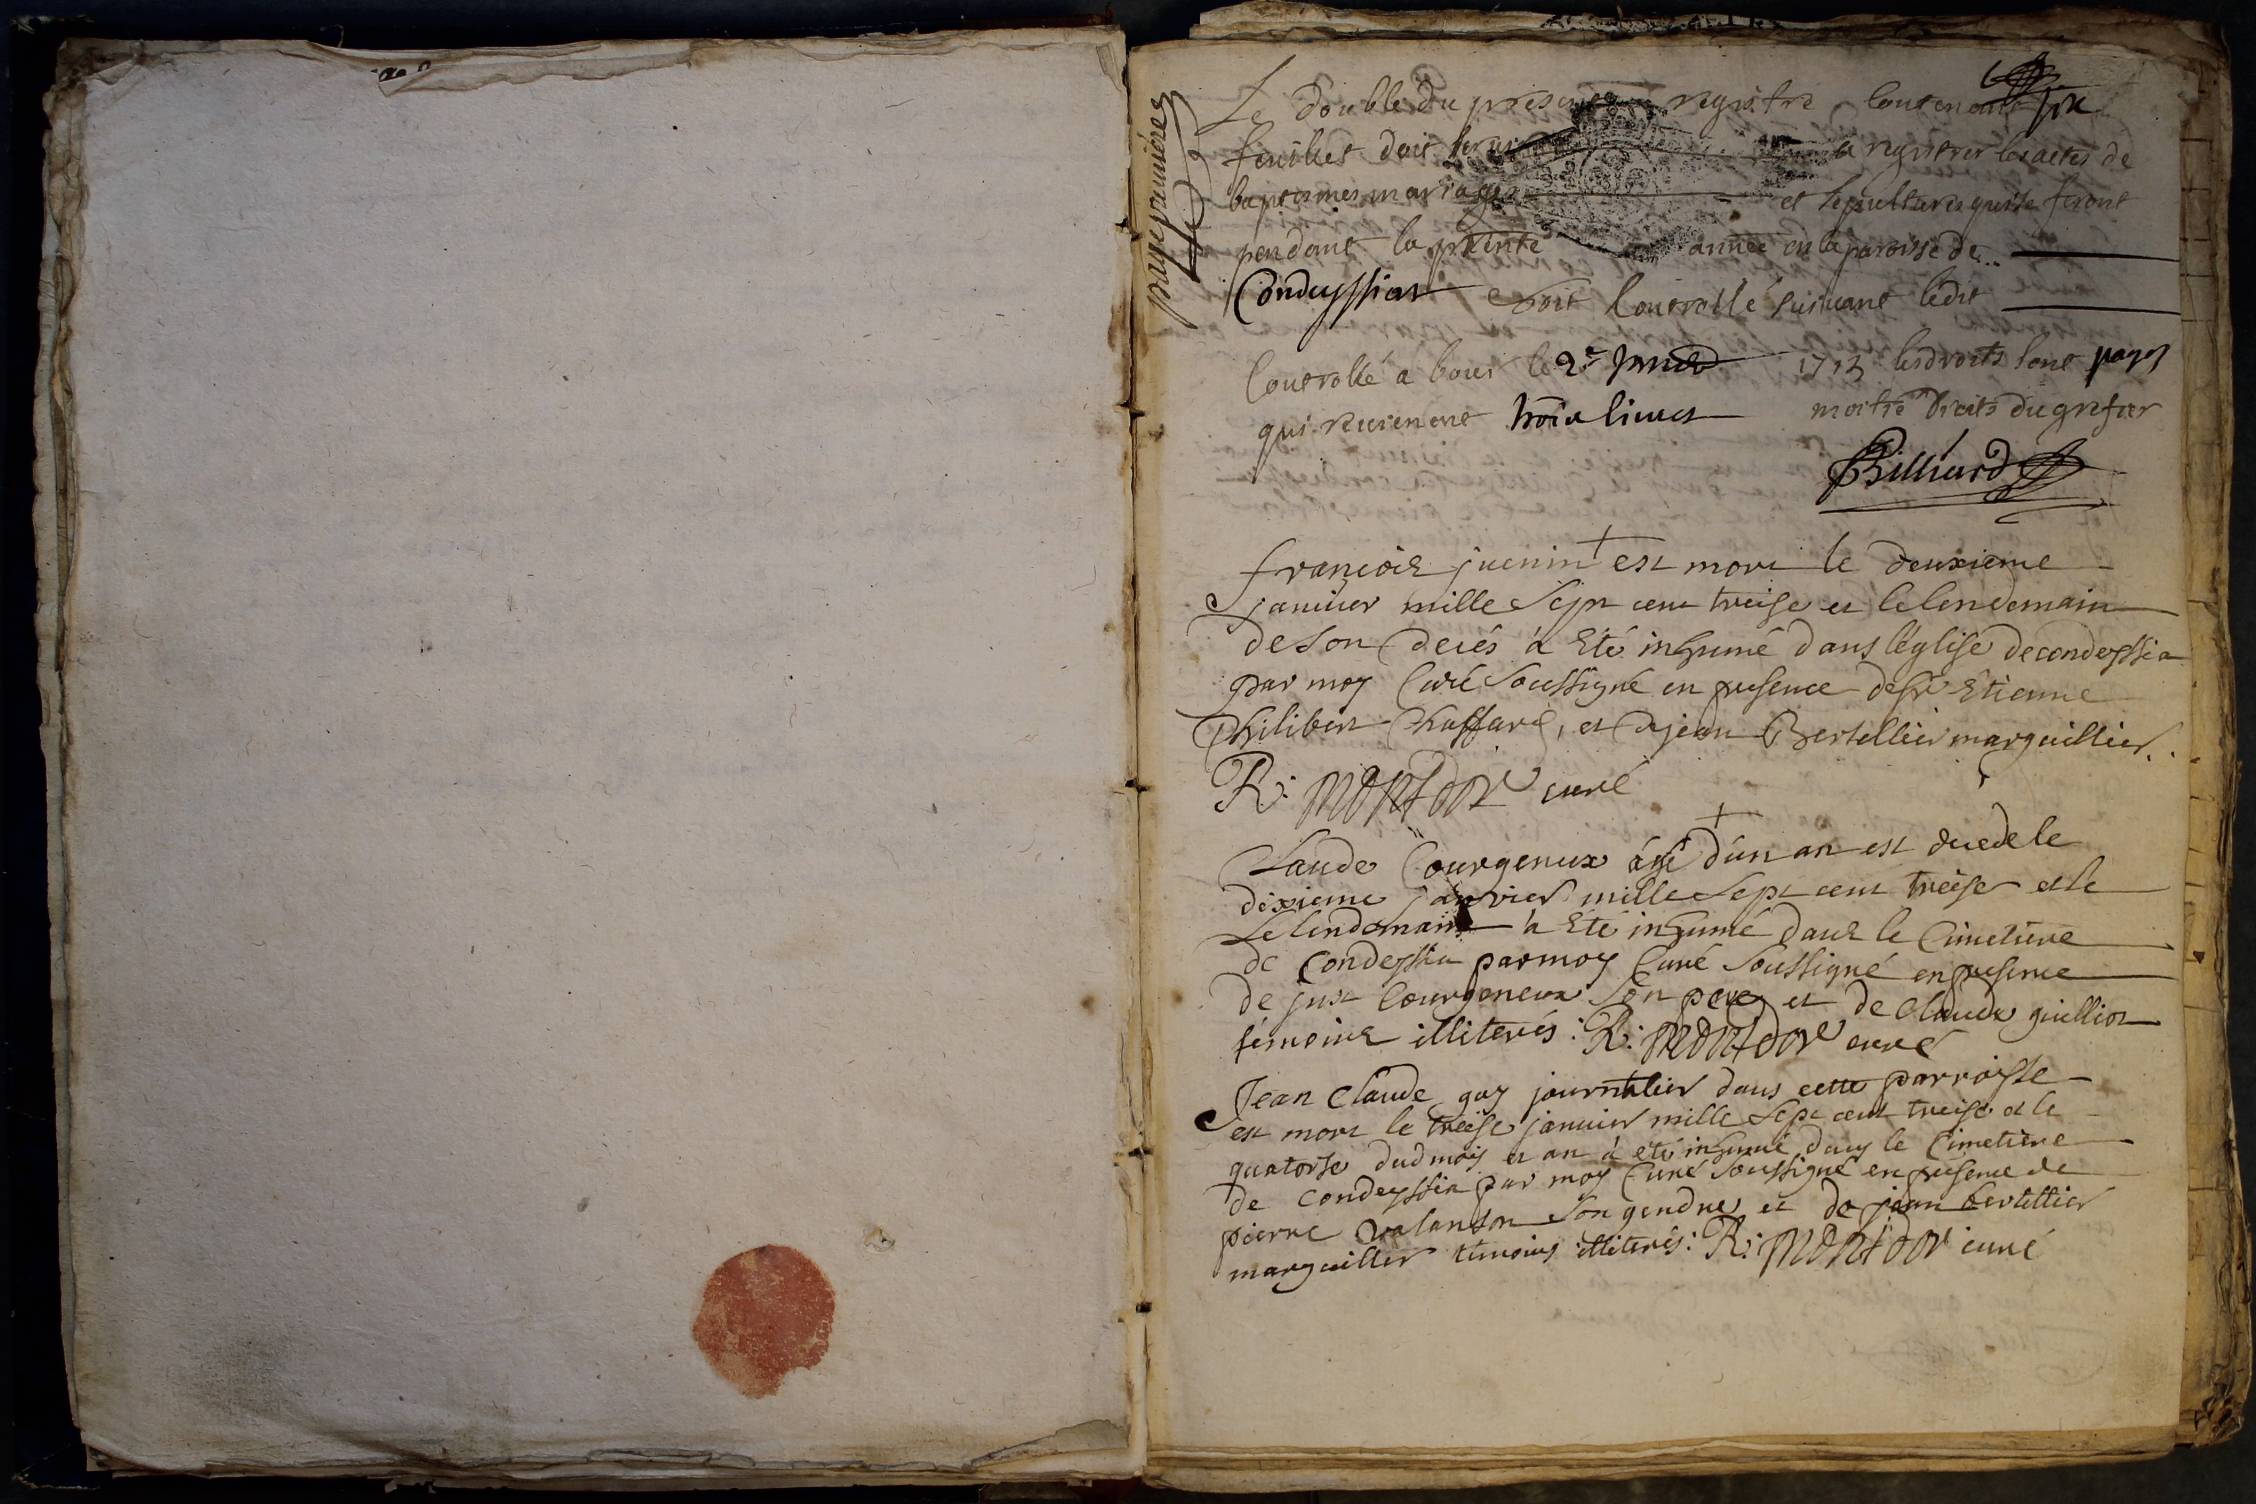 page premiere
Le double du present registre contenant six
feuillets doit servir a registrer les actes de
baptesmes mariages et sepultures qui se feront
pendant la pnte année en la paroisse de
Condeyssiat et soit Controllé suivant ledit
Controllé a bour le 2e janvier 1713 les droits sont payes
qui reviennent trois livres moitié droits du grefier
Billiard
françois juenin est mort le deuxieme
janvier mille sept cent treise et le lendemain
de son decés à Eté inhumé dans l'église de condeyssia
par moy Curé soussigné en presence de sr Etienne
Philibert Chaffard, et de jean Bertellier marguillier.
R: MONTDOR curé
Claude Courgenux âgé d'un an est decede le
dixieme janvier mille sept cent treise et le
Le lendemain à Eté inhumé dans le Cimetiere
de Condeyssia par moy Curé soussigné en presence
de just Courgeneux son pere et de Claude guilliot
témoins illiterés : R: MONTDOR curé
Jean Claude guy journalier dans cette parroisse
est mort le treise janvier mille sept cent treise et le
quatorse dud mois et an à eté inhumé dans le Cimetiere
de Condeyssia par moy Curé soussigné en presence de
pierre valanson son gendre et de jean bertellier
marguillier témoins illiterés : R: MONTDOR curé